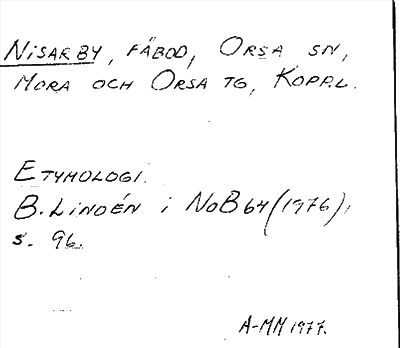 NISARBY, FÄBOD, ORSA SN,
MORA OCH ORSA TG, KOPP.L.
ETYMOLOGI.
B. LINDÉN I NOB 64 (1976),
s. 96.
A-MM 1977.